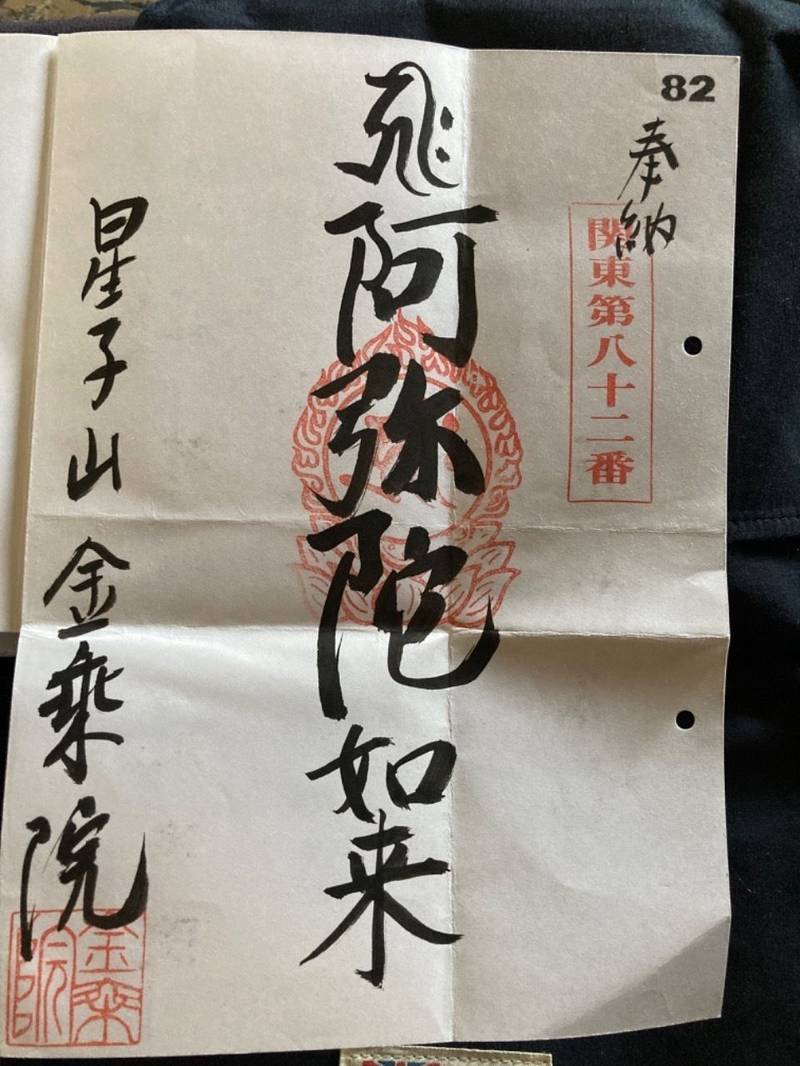 82
奉納
関東第八十二番
𑖮𑖿𑖨𑖱𑖾
阿弥陀如来
星子山 金乗院
金乗院